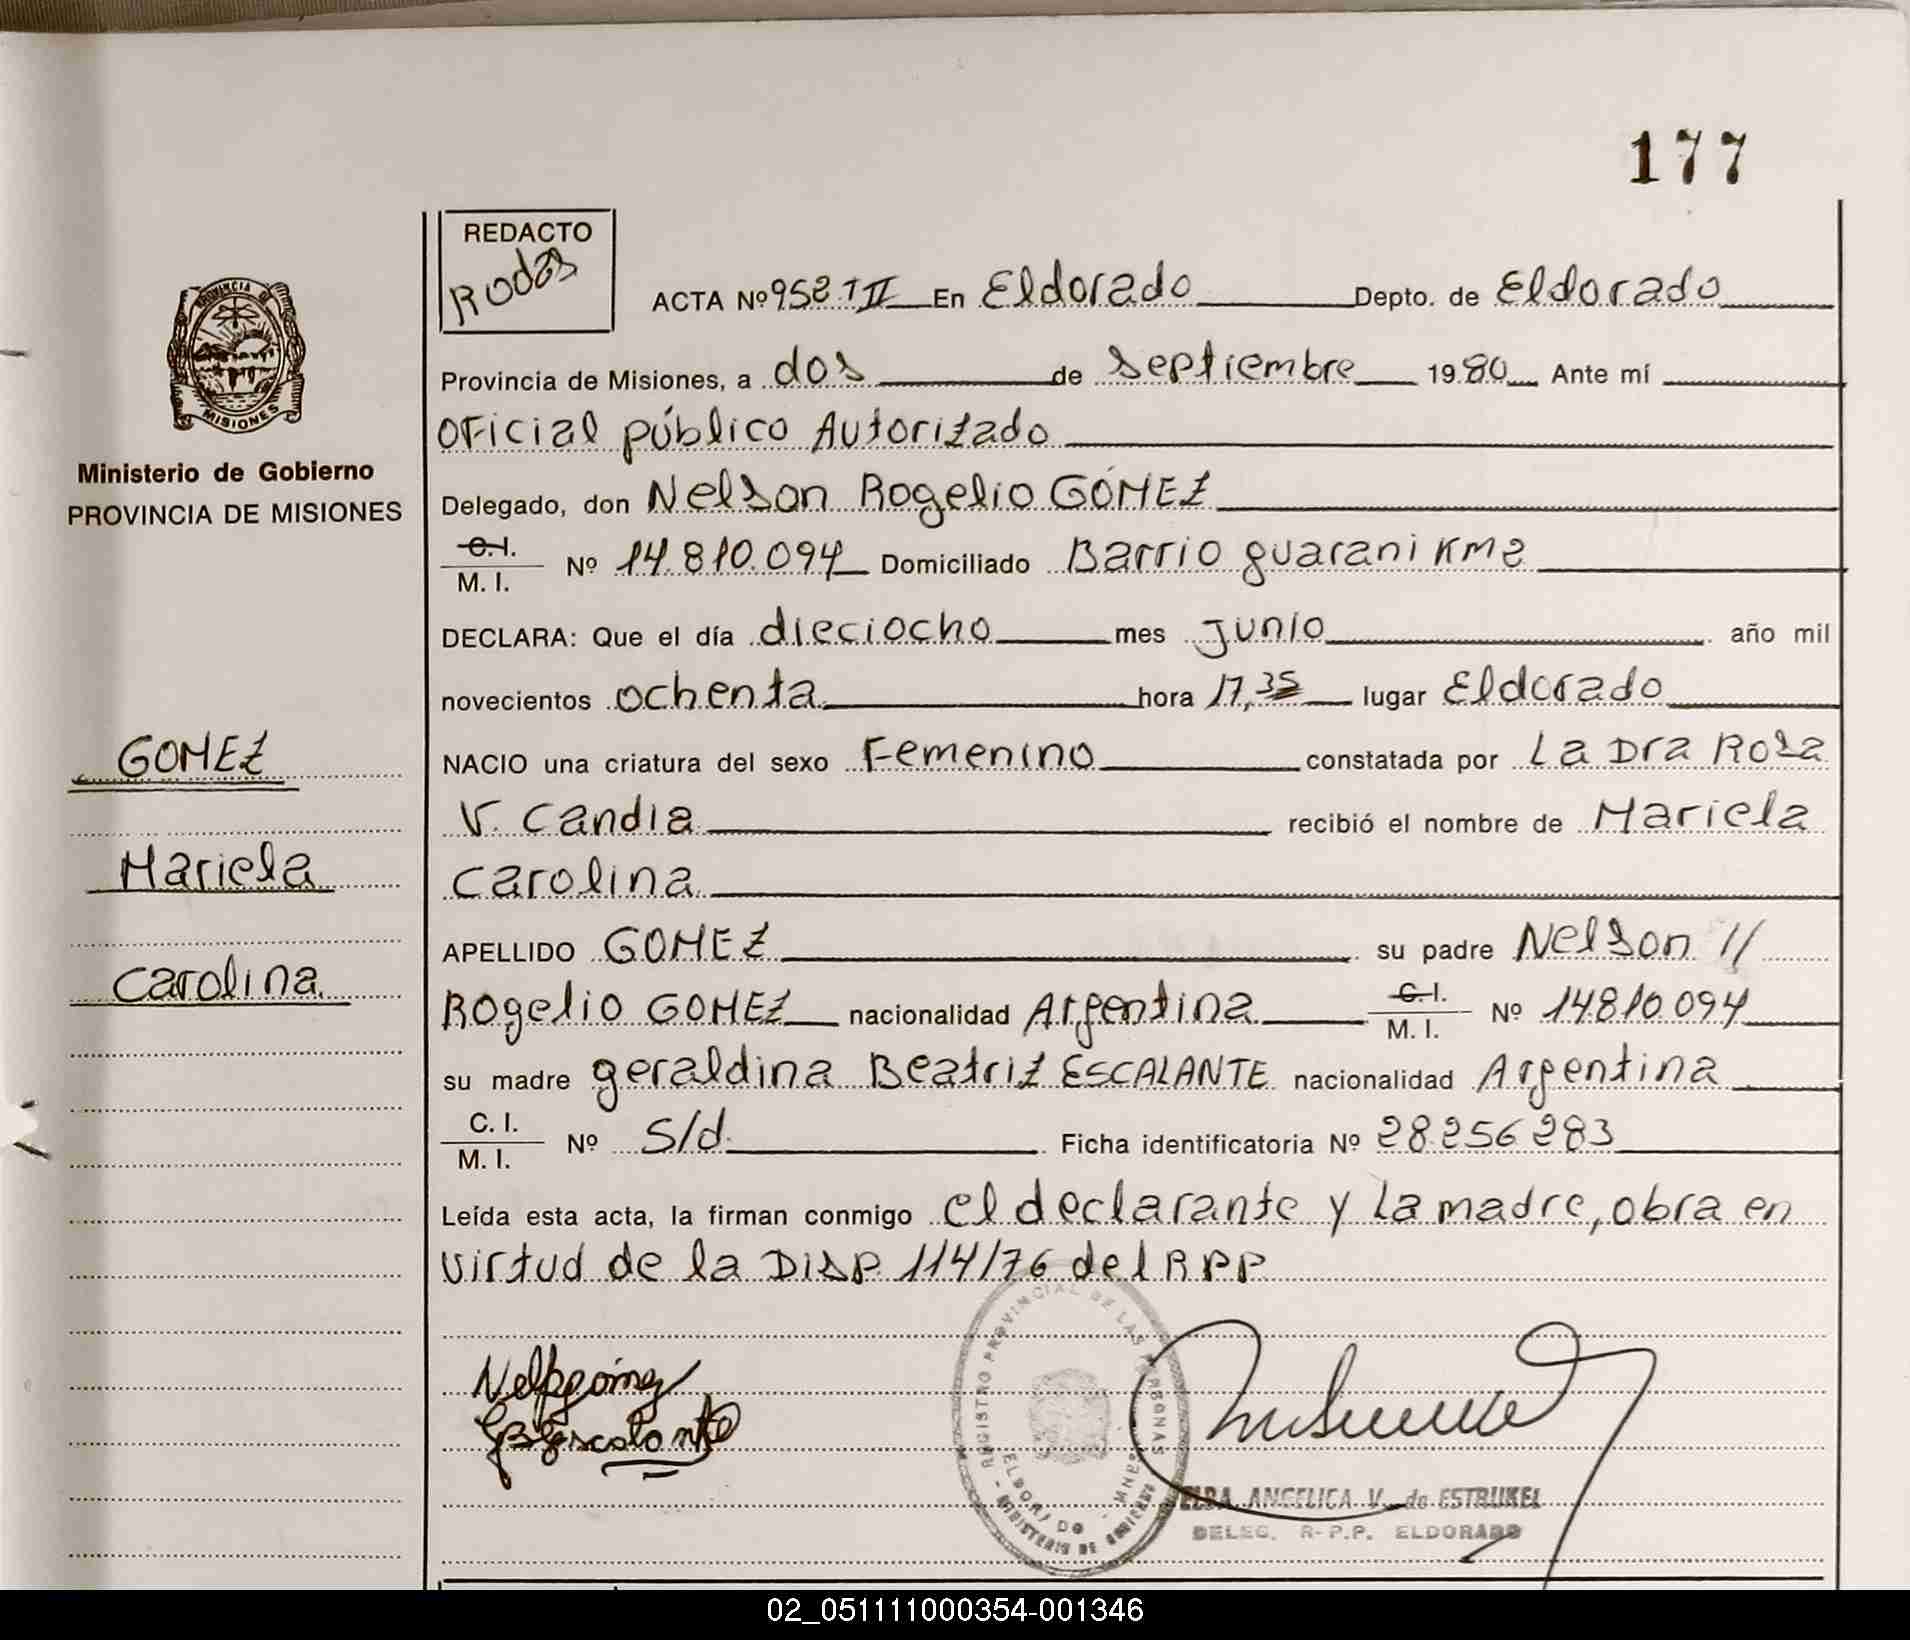 177
REDACTO
Rodas
ACTA Nº 952 TII En Eldorado Depto. de Eldorado
Provincia de Misiones, a dos de septiembre 1980 Ante mí
Oficial público Autorizado
Delegado, don Nelson Rogelio GÓMEZ
C. I.
M. I. Nº 14.810.094 Domiciliado Barrio guarani Km 2
DECLARA: Que el día dieciocho mes junio año mil
novecientos ochenta hora 17,35 lugar Eldorado
NACIO una criatura del sexo Femenino constatada por La Dra Rosa
V. Candia recibió el nombre de Mariela
Carolina
APELLIDO GOMEZ su padre Nelson //
Rogelio GOMEZ nacionalidad Argentina C. I. M. I. Nº 14810.094
su madre geraldina Beatriz ESCALANTE nacionalidad Argentina
C. I.
M. I. Nº S/d. Ficha identificatoria Nº 28.256.283
Leída esta acta, la firman conmigo el declarante y La madre, obra en
virtud de la Disp. 114/76 del RPP
PROVINCIA DE
MISIONES
Ministerio de Gobierno
PROVINCIA DE MISIONES
GOMEZ
Mariela
Carolina
REGISTRO PROVINCIAL DE LAS PERSONAS
ELDORADO
MINISTERIO DE GOBIERNO
ELBA ANGELICA V. de ESTRUKEL
DELEG. R-P.P. ELDORADO
02_051111000354-001346